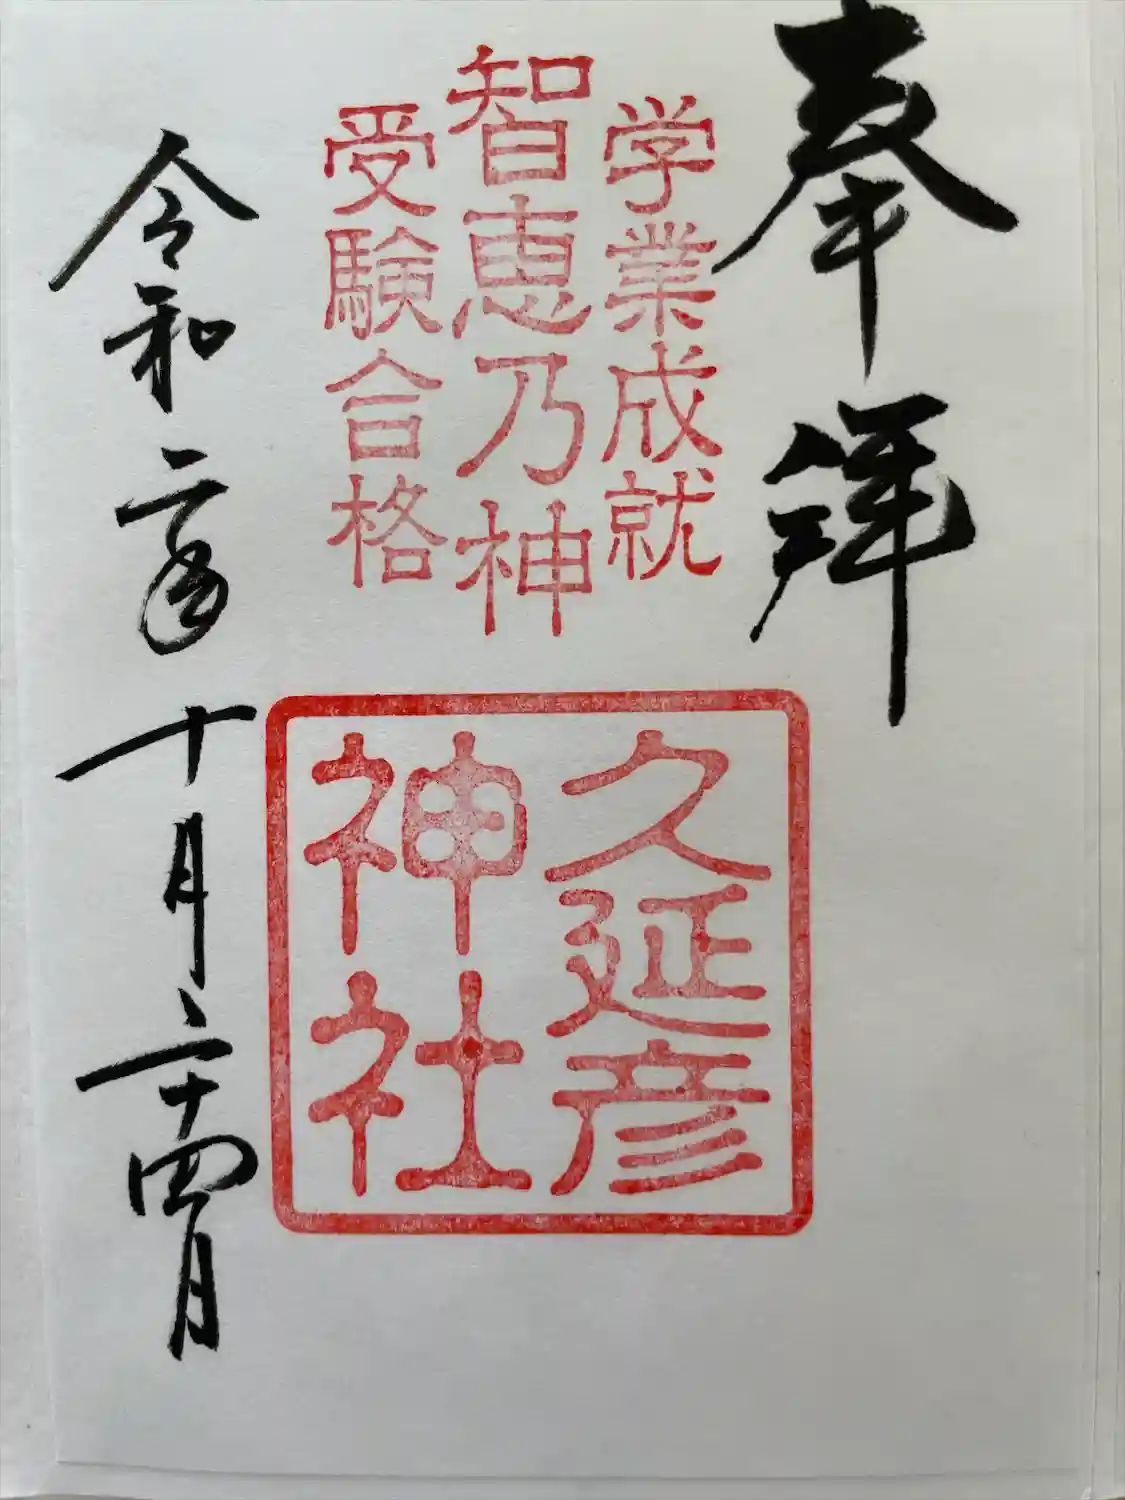 奉拝
学業成就
智恵乃神
受験合格
久延彦
神社
令和二年
十月二十四日